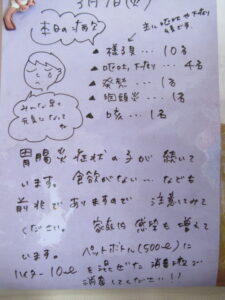 3月7日(火)
本日の病欠
主に嘔吐や下痢
▲ 様子見… 10名
▲ 嘔吐、下痢… 4名
▲ 発熱… 1名
▲ 咽頭炎… 1名
▲ 咳… 1名
みんな早く
元気になってね
胃腸炎症状の子が続いて
います。食欲がない…なども
前兆でありますので 注意してみて
ください。 家庭内感染も増えて
います。 ペットボトル(500㎖)に
ハイター 10㎖ を混ぜた消毒液で
消毒してください!!